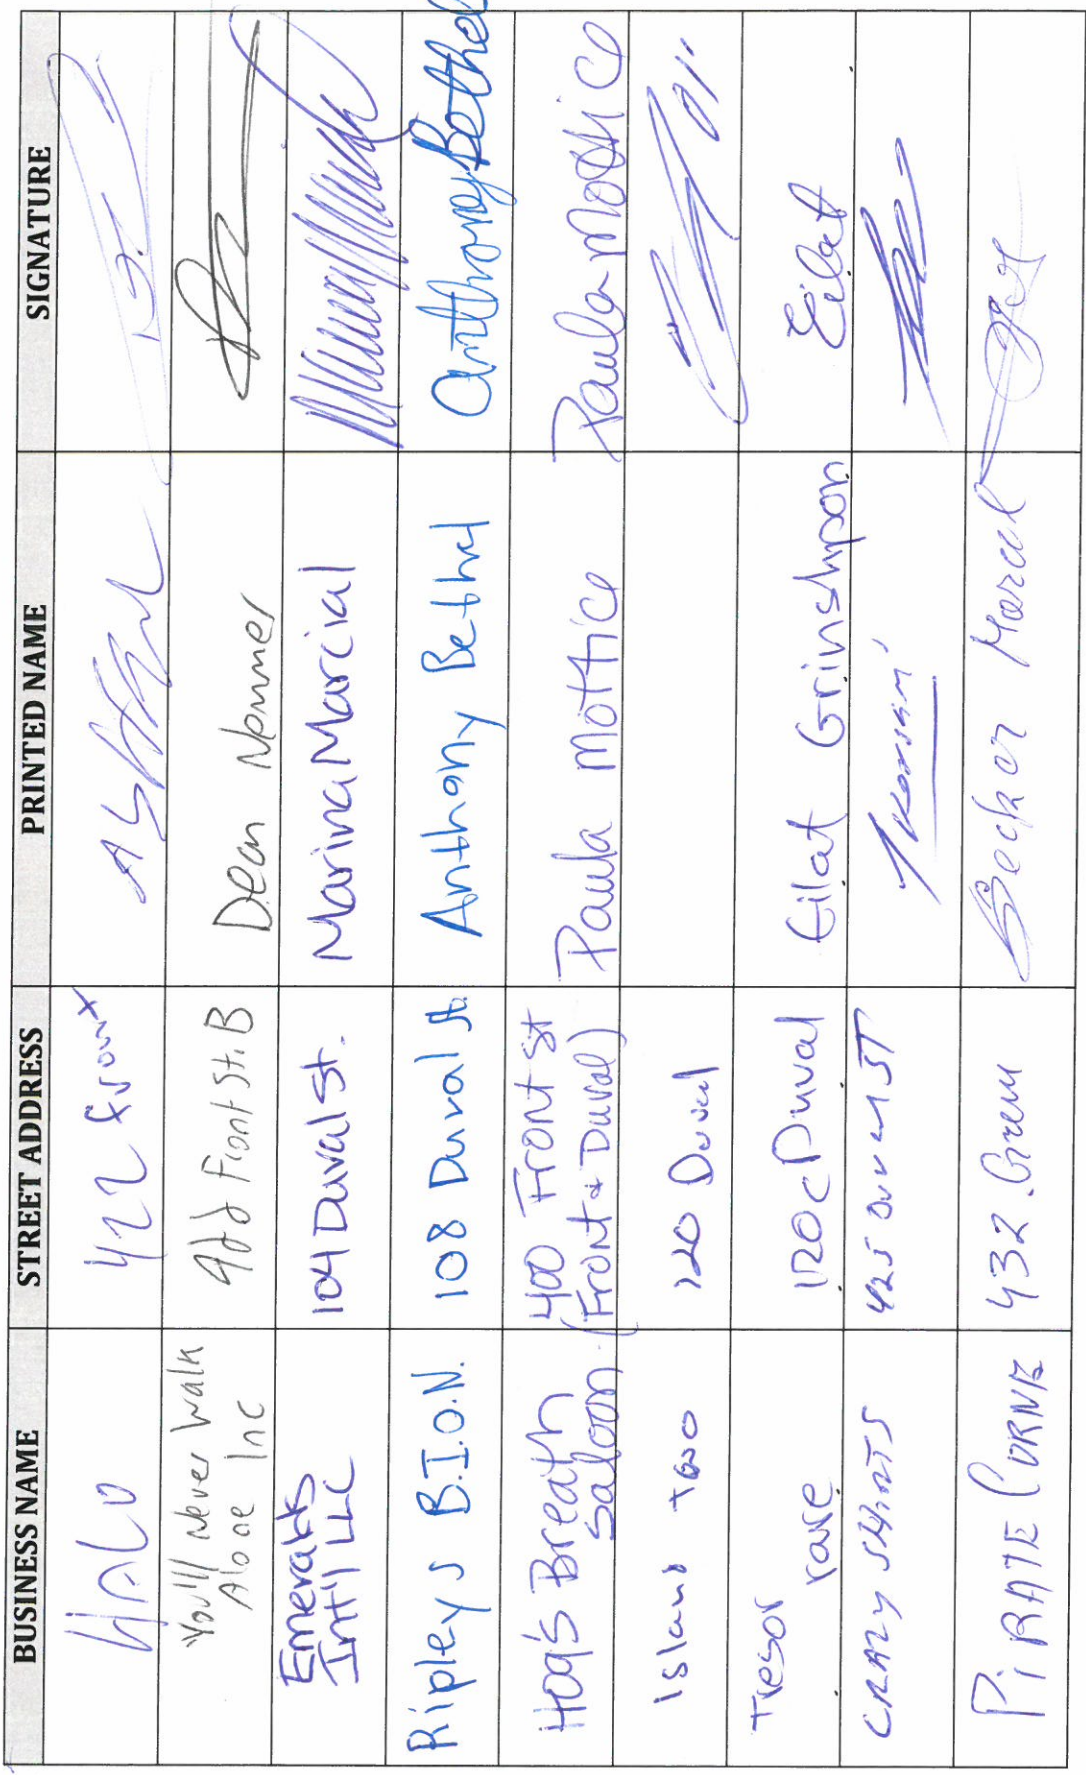 BUSINESS NAME STREET ADDRESS PRINTED NAME SIGNATURE
HALO 422 Front
You'll Never Walk
Alone Inc 422 Front St. B Dean Nommer
Emeralds
Int'll LLC 104 Duval St. Marina Marcial
Ripleys B.I.O.N. 108 Duval St. Anthony Bethel Anthony Bethel
Hog's Breath 400 Front St Paula Mottice Paula Mottice
Saloon (Front + Duval)
Island Too 120 Duval
Tresor rare 120c Duval Eilat Grinshpon Eilat
CRAZY SHIRTS 425 Duval ST
PIRATE CORNR 432 . Green Becker Marcel